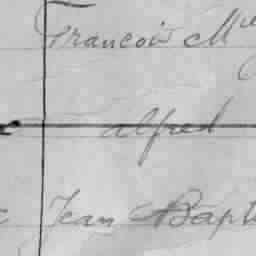 Francois M
alfred
Jean Bapt